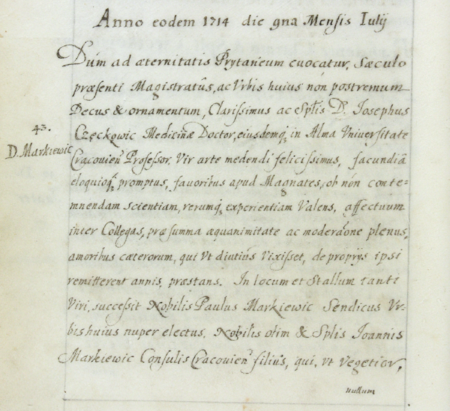 Anno eodem 1714 die 9na Mensis Iulij
Dum ad æternitatis Prytaneum euocatur, Sæculo
præsenti Magistratûs, ac Vrbis huius non postremum
Decus & ornamentum, Clarissimus ac Splis D. Iosephus
43.
Czeckowic Medicinæ Doctor, eiusdemq, in Alma Vniversitate
D. Markiewic
Cracovien Profeſsor. Vir arte medendi feliciſsimus, facundiâ
eloquioq, promptus, favoribus apud Magnates, ob nón conte-
mnendam scientiam, rerumq, experientiam Valens, affectuum
inter Collegas, præ summa æquanimitate ac moderaône plenus,
amoribus cæterorum, qui Vt diutiùs Vixisset, de proprijs ipsi
remitterent annis, præstans. In locum et Stallum tanti
Viri, succeſsit Nobilis Paulus Markiewic Sendicus Vr-
bis huius nuper electus. Nobilis olim & Splis Ioannis
Markiewic Consulis Cracovien filius, qui, vt Vegetior,
nullum